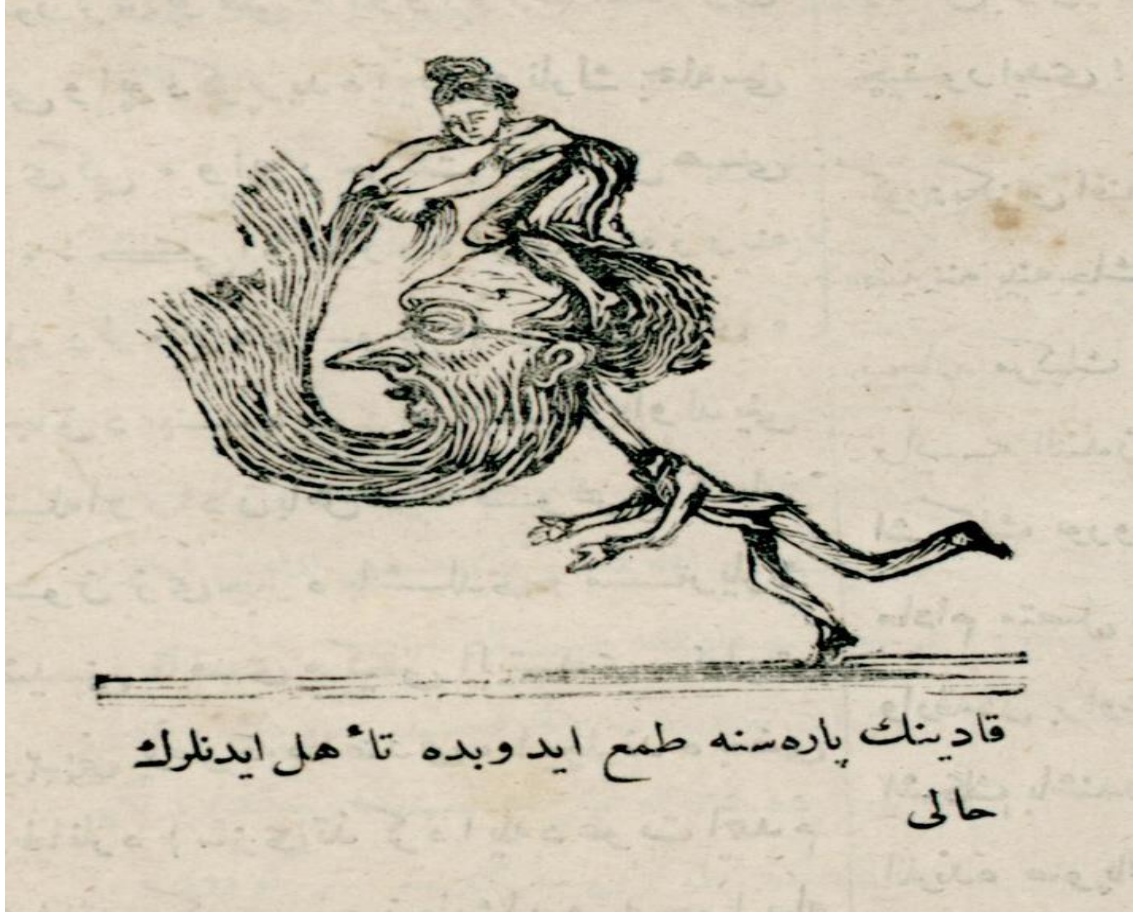 قادینك پاره‌سنه طمع ایدوبده تأهل ایدنلرك
حالی